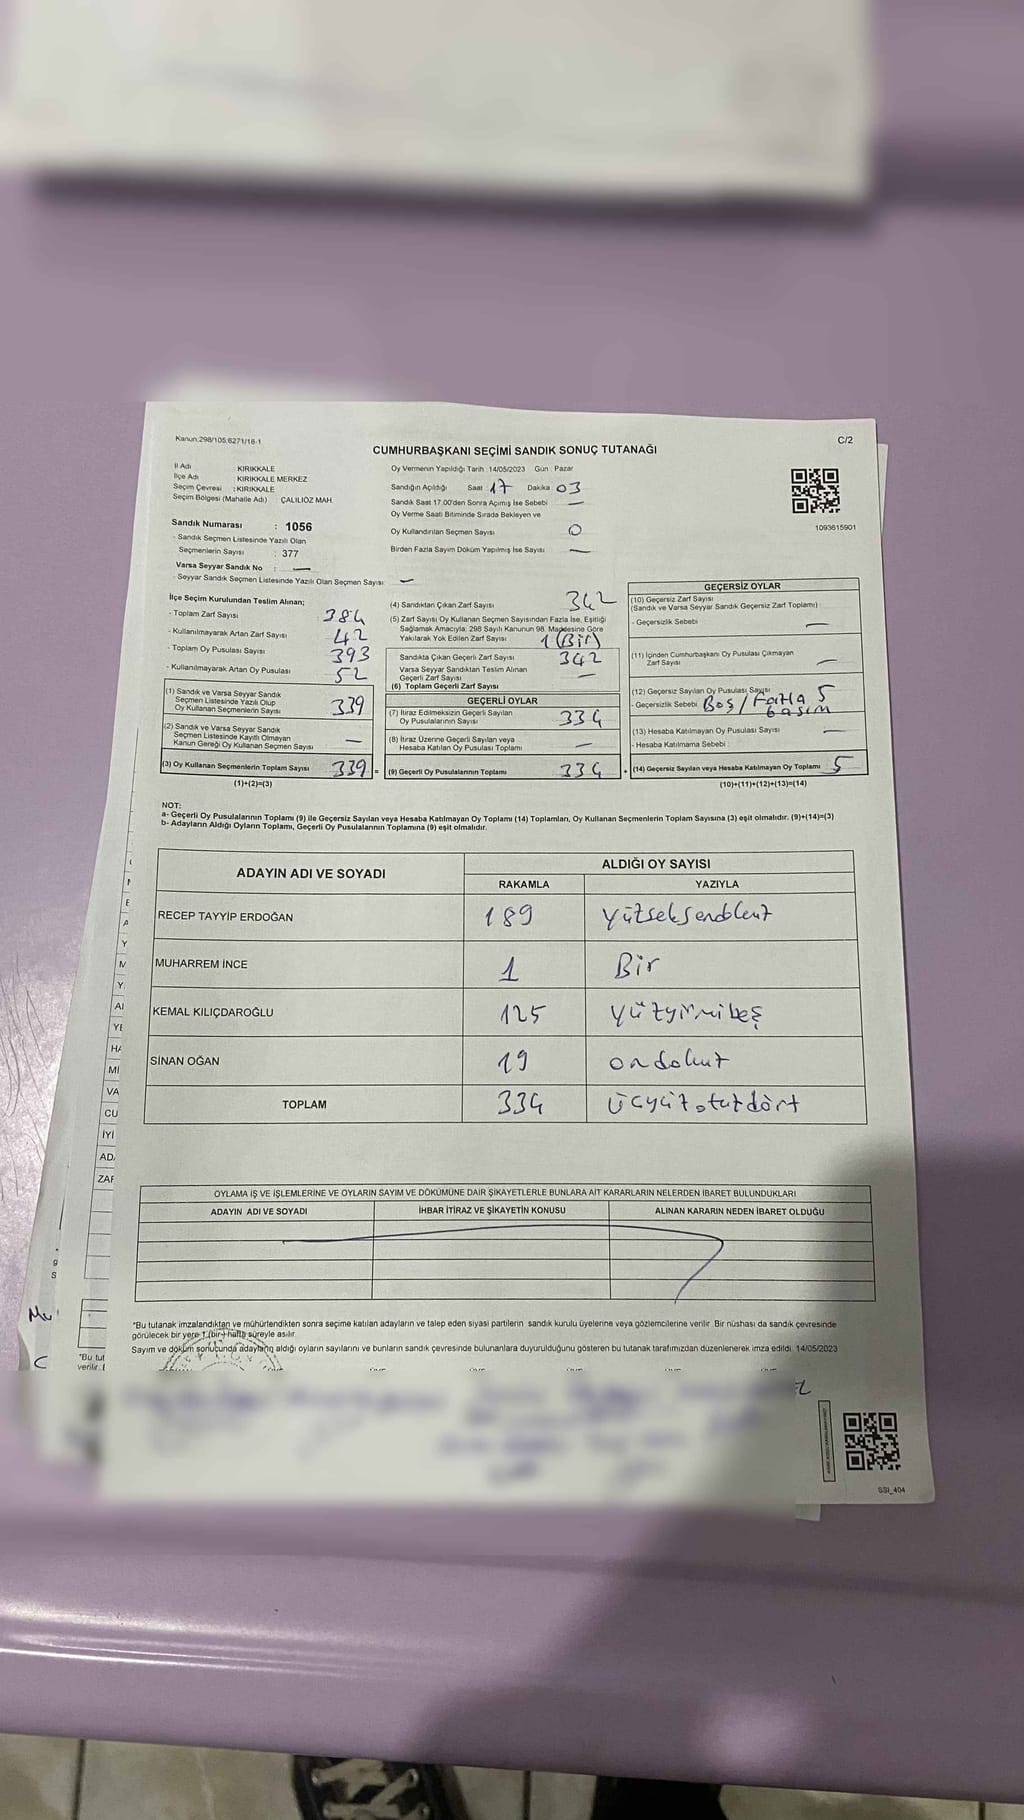 Kanun:298/105;6271/16-1
C/2
CUMHURBAŞKANI SEÇİMİ SANDIK SONUÇ TUTANAĞI
İl Adı : KIRIKKALE
İlçe Adı : KIRIKKALE MERKEZ
Seçim Çevresi : KIRIKKALE
Seçim Bölgesi (Mahalle Adı) : ÇALILIÖZ MAH.
Oy Vermenin Yapıldığı Tarih :14/05/2023 Gün : Pazar
Sandığın Açıldığı Saat 17 Dakika 03
Sandık Saat 17:00'den Sonra Açılmış İse Sebebi —
Oy Verme Saati Bitiminde Sırada Bekleyen ve
Oy Kullandırılan Seçmen Sayısı 0
Birden Fazla Sayım Döküm Yapılmış İse Sayısı —
1093615901
Sandık Numarası : 1056
- Sandık Seçmen Listesinde Yazılı Olan
Seçmenlerin Sayısı : 377
Varsa Seyyar Sandık No : —
- Seyyar Sandık Seçmen Listesinde Yazılı Olan Seçmen Sayısı: —
İlçe Seçim Kurulundan Teslim Alınan;
- Toplam Zarf Sayısı 384
- Kullanılmayarak Artan Zarf Sayısı 42
- Toplam Oy Pusulası Sayısı 393
- Kullanılmayarak Artan Oy Pusulası 52
(1) Sandık ve Varsa Seyyar Sandık
Seçmen Listesinde Yazılı Olup
Oy Kullanan Seçmenlerin Sayısı 339
(2) Sandık ve Varsa Seyyar Sandık
Seçmen Listesinde Kayıtlı Olmayan
Kanun Gereği Oy Kullanan Seçmen Sayısı —
(3) Oy Kullanan Seçmenlerin Toplam Sayısı 339 =
(1)+(2)=(3)
(4) Sandıktan Çıkan Zarf Sayısı 342
(5) Zarf Sayısı Oy Kullanan Seçmen Sayısından Fazla İse, Eşitliği
Sağlamak Amacıyla; 298 Sayılı Kanunun 98. Maddesine Göre
Yakılarak Yok Edilen Zarf Sayısı 1 (Bir)
Sandıkta Çıkan Geçerli Zarf Sayısı 342
Varsa Seyyar Sandıktan Teslim Alınan
Geçerli Zarf Sayısı —
(6) Toplam Geçerli Zarf Sayısı
GEÇERLİ OYLAR
(7) İtiraz Edilmeksizin Geçerli Sayılan
Oy Pusulalarının Sayısı 334
(8) İtiraz Üzerine Geçerli Sayılan veya
Hesaba Katılan Oy Pusulası Toplamı —
(9) Geçerli Oy Pusulalarının Toplamı 334 +
GEÇERSİZ OYLAR
(10) Geçersiz Zarf Sayısı
(Sandık ve Varsa Seyyar Sandık Geçersiz Zarf Toplamı)
- Geçersizlik Sebebi : —
(11) İçinden Cumhurbaşkanı Oy Pusulası Çıkmayan
Zarf Sayısı —
(12) Geçersiz Sayılan Oy Pusulası Sayısı 5
- Geçersizlik Sebebi : Boş / Fazla
basım
(13) Hesaba Katılmayan Oy Pusulası Sayısı —
- Hesaba Katılmama Sebebi :
(14) Geçersiz Sayılan veya Hesaba Katılmayan Oy Toplamı 5
(10)+(11)+(12)+(13)=(14)
NOT:
a- Geçerli Oy Pusulalarının Toplamı (9) ile Geçersiz Sayılan veya Hesaba Katılmayan Oy Toplamı (14) Toplamları, Oy Kullanan Seçmenlerin Toplam Sayısına (3) eşit olmalıdır. (9)+(14)=(3)
b- Adayların Aldığı Oyların Toplamı, Geçerli Oy Pusulalarının Toplamına (9) eşit olmalıdır.
ADAYIN ADI VE SOYADI
ALDIĞI OY SAYISI
RAKAMLA YAZIYLA
RECEP TAYYİP ERDOĞAN 189 Yüzseksendokuz
MUHARREM İNCE 1 Bir
KEMAL KILIÇDAROĞLU 125 yüzyirmibeş
SİNAN OĞAN 19 ondokuz
TOPLAM 334 Üçyüzotuzdört
OYLAMA İŞ VE İŞLEMLERİNE VE OYLARIN SAYIM VE DÖKÜMÜNE DAİR ŞİKAYETLERLE BUNLARA AİT KARARLARIN NELERDEN İBARET BULUNDUKLARI
ADAYIN ADI VE SOYADI İHBAR İTİRAZ VE ŞİKAYETİN KONUSU ALINAN KARARIN NEDEN İBARET OLDUĞU
*Bu tutanak imzalandıktan ve mühürlendikten sonra seçime katılan adayların ve talep eden siyasi partilerin sandık kurulu üyelerine veya gözlemcilerine verilir. Bir nüshası da sandık çevresinde
görülecek bir yere 1 (bir) hafta süreyle asılır.
Sayım ve döküm sonucunda adayların aldığı oyların sayılarını ve bunların sandık çevresinde bulunanlara duyurulduğunu gösteren bu tutanak tarafımızdan düzenlenerek imza edildi. 14/05/2023
SSI_404